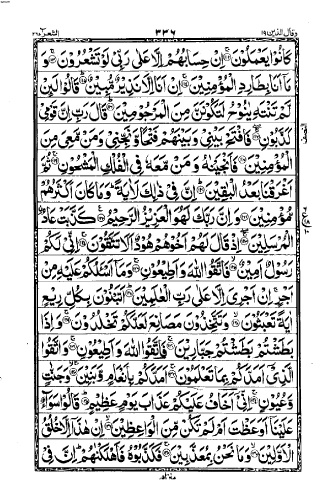 وقال الذين ١٩ ٣٣٦ الشعرآء ٢٦
كَانُوْا يَعْمَلُوْنَ اِنْ حِسَابُهُمْ اِلَّا عَلٰى رَبِّيْ لَوْ تَشْعُرُوْنَ وَ
مَاۤ اَنَا بِطَارِدِ الْمُؤْمِنِيْنَ اِنْ اَنَا اِلَّا نَذِيْرٌ مُّبِيْنٌ قَالُوْا لَىِٕنْ
لَّمْ تَنْتَهِ يٰنُوْحُ لَتَكُوْنَنَّ مِنَ الْمَرْجُوْمِيْنَ قَالَ رَبِّ اِنَّ قَوْمِيْ
كَذَّبُوْنِ فَافْتَحْ بَيْنِيْ وَبَيْنَهُمْ فَتْحًا وَّنَجِّنِيْ وَمَنْ مَّعِيَ مِنَ
الْمُؤْمِنِيْنَ فَاَنْجَيْنٰهُ وَمَنْ مَّعَهٗ فِي الْفُلْكِ الْمَشْحُوْنِ ثُمَّ
اَغْرَقْنَا بَعْدُ الْبٰقِيْنَ اِنَّ فِيْ ذٰلِكَ لَاٰيَةً وَمَا كَانَ اَكْثَرُهُمْ
مُّؤْمِنِيْنَ وَاِنَّ رَبَّكَ لَهُوَ الْعَزِيْزُ الرَّحِيْمُ كَذَّبَتْ عَادُ
الْمُرْسَلِيْنَ اِذْ قَالَ لَهُمْ اَخُوْهُمْ هُوْدٌ اَلَا تَتَّقُوْنَ اِنِّيْ لَكُمْ
رَسُوْلٌ اَمِيْنٌ فَاتَّقُوا اللّٰهَ وَاَطِيْعُوْنِ وَمَاۤ اَسْـَٔلُكُمْ عَلَيْهِ مِنْ
اَجْرٍ اِنْ اَجْرِيَ اِلَّا عَلٰى رَبِّ الْعٰلَمِيْنَ اَتَبْنُوْنَ بِكُلِّ رِيْعٍ
اٰيَةً تَعْبَثُوْنَ وَتَتَّخِذُوْنَ مَصَانِعَ لَعَلَّكُمْ تَخْلُدُوْنَ وَاِذَا
بَطَشْتُمْ بَطَشْتُمْ جَبَّارِيْنَ فَاتَّقُوا اللّٰهَ وَاَطِيْعُوْنِ وَاتَّقُوا
الَّذِيْۤ اَمَدَّكُمْ بِمَا تَعْلَمُوْنَ اَمَدَّكُمْ بِاَنْعَامٍ وَّبَنِيْنَ وَجَنّٰتٍ
وَّعُيُوْنٍ اِنِّيْۤ اَخَافُ عَلَيْكُمْ عَذَابَ يَوْمٍ عَظِيْمٍ قَالُوْا سَوَآءٌ
عَلَيْنَاۤ اَوَعَظْتَ اَمْ لَمْ تَكُنْ مِّنَ الْوٰعِظِيْنَ اِنْ هٰذَاۤ اِلَّا خُلُقُ
الْاَوَّلِيْنَ وَمَا نَحْنُ بِمُعَذَّبِيْنَ فَكَذَّبُوْهُ فَاَهْلَكْنٰهُمْ اِنَّ فِيْ